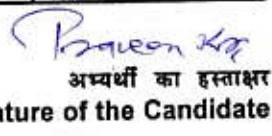 Praveen
अभ्यर्थी का हस्ताक्षर
ature of the Candidate